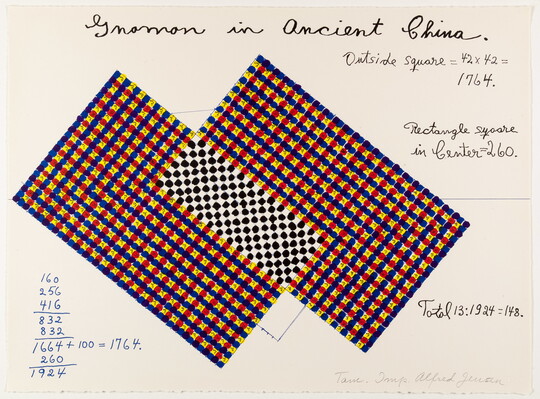 Gnomon in Ancient China.
Outside square = 42 x 42 =
1764.
Rectangle sqoare
in Center = 260.
160
256
416
832
832
1664 + 100 = 1764.
260
1924
Total 13:1924 = 148.
Tam. Imp. Alfred Jensen